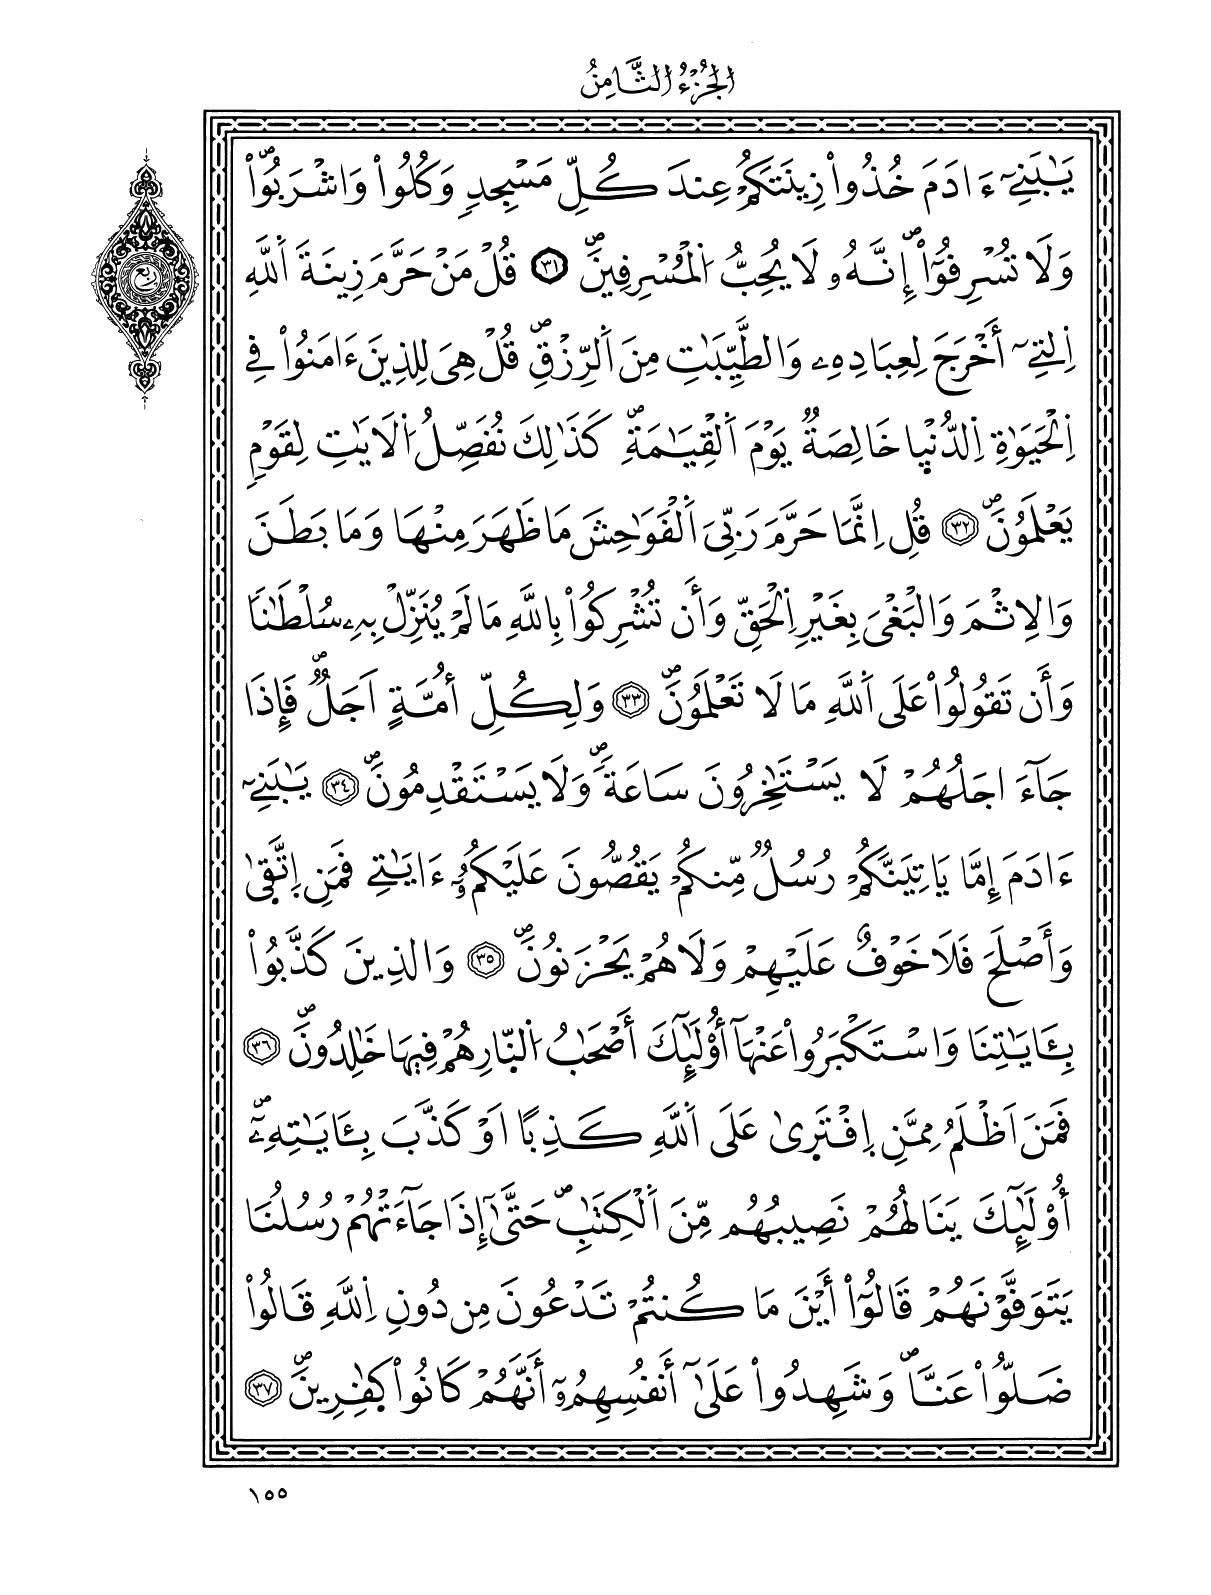 الجُزْءُ الثَّامِنُ
يَٰبَنِےٓ ءَادَمَ خُذُواْ زِينَتَكُمْ عِندَ كُلِّ مَسْجِدٖ وَكُلُواْ وَاشْرَبُواْۖ
وَلَا تُسْرِفُوٓاْۖ إِنَّهُۥ لَا يُحِبُّ اُ۬لْمُسْرِفِينَۖ ٣١ قُلْ مَنْ حَرَّمَ زِينَةَ اَ۬للَّهِ
اِ۬لتِےٓ أَخْرَجَ لِعِبَادِهِۦ وَالطَّيِّبَٰتِ مِنَ اَ۬لرِّزْقِۖ قُلْ هِيَ لِلذِينَ ءَامَنُواْ فِے
اِ۬لْحَيَوٰةِ اِ۬لدُّنْيٜا خَالِصَةٞ يَوْمَ اَ۬لْقِيَٰمَةِۖ كَذَٰلِكَ نُفَصِّلُ اُ۬لَايَٰتِ لِقَوْمٖ
يَعْلَمُونَۖ ٣٢ قُلِ اِنَّمَا حَرَّمَ رَبِّيَ اَ۬لْفَوَٰحِشَ مَا ظَهَرَ مِنْهَا وَمَا بَطَنَ
وَالِاثْمَ وَالْبَغْيَ بِغَيْرِ اِ۬لْحَقِّ وَأَن تُشْرِكُواْ بِاللَّهِ مَا لَمْ يُنَزِّلْ بِهِۦ سُلْطَٰناٗ
وَأَن تَقُولُواْ عَلَى اَ۬للَّهِ مَا لَا تَعْلَمُونَۖ ٣٣ وَلِكُلِّ أُمَّةٍ اَجَلٞۖ فَإِذَا
جَآءَ اجَلُهُمْ لَا يَسْتَٰخِرُونَ سَاعَةٗۖ وَلَا يَسْتَقْدِمُونَۖ ٣٤ يَٰبَنِےٓ
ءَادَمَ إِمَّا يَاتِيَنَّكُمْ رُسُلٞ مِّنكُمْ يَقُصُّونَ عَلَيْكُمُۥٓ ءَايَٰتِے فَمَنِ اِ۪تَّق۪ىٰ
وَأَصْلَحَ فَلَا خَوْفٌ عَلَيْهِمْ وَلَا هُمْ يَحْزَنُونَۖ ٣٥ وَالذِينَ كَذَّبُواْ
بِـَٔايَٰتِنَا وَاسْتَكْبَرُواْ عَنْهَآ أُوْلَٰٓئِكَ أَصْحَٰبُ اُ۬لنّ۪ارِ هُمْ فِيهَا خَٰلِدُونَۖ ٣٦
فَمَنَ اَظْلَمُ مِمَّنِ اِ۪فْتَر۪ىٰ عَلَى اَ۬للَّهِ كَذِباً اَوْ كَذَّبَ بِـَٔايَٰتِهِۦٓۖ
أُوْلَٰٓئِكَ يَنَالُهُمْ نَصِيبُهُم مِّنَ اَ۬لْكِتَٰبِۖ حَتَّىٰٓ إِذَا جَآءَتْهُمْ رُسُلُنَا
يَتَوَفَّوْنَهُمْ قَالُوٓاْ أَيْنَ مَا كُنتُمْ تَدْعُونَ مِن دُونِ اِ۬للَّهِ قَالُواْ
ضَلُّواْ عَنَّاۖ وَشَهِدُواْ عَلَىٰٓ أَنفُسِهِمُۥٓ أَنَّهُمْ كَانُواْ كٜ۪فِرِينَۖ ٣٧
ربع
١٥٥